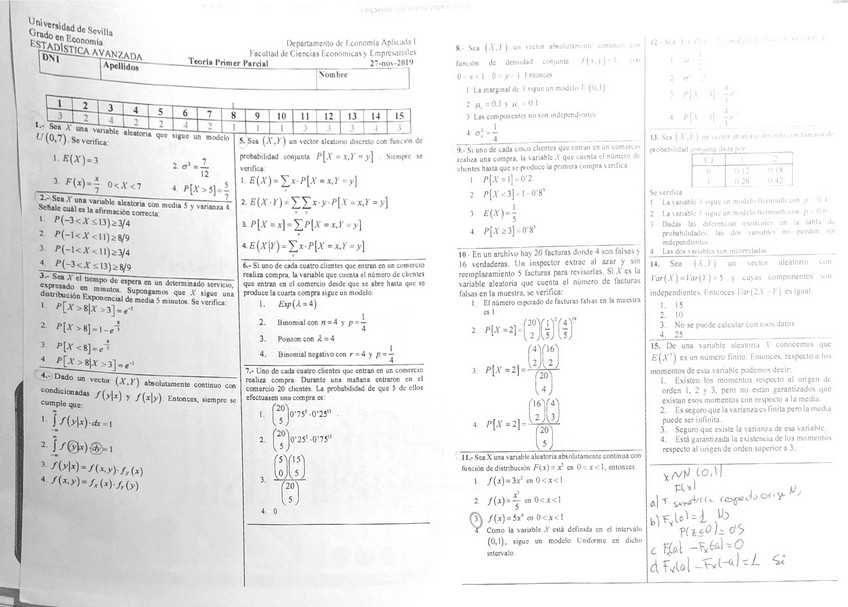 Universidad de Sevilla
Grado en Economía
ESTADÍSTICA AVANZADA
Departamento de Economía Aplicada I
Facultad de Ciencias Económicas y Empresariales
Teoría Primer Parcial
27-nov-2019
DNI
Apellidos
Nombre
1 2 3 4 5 6 7 8 9 10 11 12 13 14 15
3 2 4 2 2 4 2 1 1 1 3 3 3 4 3
1.- Sea X una variable aleatoria que sigue un modelo
U(0,7). Se verifica:
1. E(X)=3
2. σ²=7/12
3. F(x)=x/7 0<X<7
4. P[X>5]=5/7
2.- Sea X una variable aleatoria con media 5 y varianza 4.
Señale cuál es la afirmación correcta:
1. P(-3<X≤13)≥3/4
2. P(-1<X<11)≥8/9
3. P(-1<X<11)≥3/4
4. P(-3<X≤13)≥8/9
3.- Sea X el tiempo de espera en un determinado servicio,
expresado en minutos. Supongamos que X sigue una
distribución Exponencial de media 5 minutos. Se verifica:
1. P[X>8|X>3]=e⁻²
2. P[X>8]=1-e^(-8/5)
3. P[X<8]=e^(-8/5)
4. P[X>8|X>3]=e⁻¹
4.- Dado un vector (X,Y) absolutamente continuo con
condicionadas f(y|x) y f(x|y). Entonces, siempre se
cumple que:
1. ∫f(y|x)·dx=1
2. ∫f(y|x)·dy=1
3. f(y|x)=f(x,y)·f_X(x)
4. f(x,y)=f_X(x)·f_Y(y)
5. Sea (X,Y) un vector aleatorio discreto con función de
probabilidad conjunta P[X=x,Y=y]. Siempre se
verifica:
1. E(X)=∑x·P[X=x,Y=y]
2. E(X·Y)=∑∑x·y·P[X=x,Y=y]
3. P[X=x]=∑P[X=x,Y=y]
4. E(X|Y)=∑x·P[X=x,Y=y]
6.- Si uno de cada cuatro clientes que entran en un comercio
realiza compra, la variable que cuenta el número de clientes
que entran en el comercio desde que se abre hasta que se
produce la cuarta compra sigue un modelo:
1. Exp(λ=4)
2. Binomial con n=4 y p=1/4
3. Poisson con λ=4
4. Binomial negativo con r=4 y p=1/4
7.- Uno de cada cuatro clientes que entran en un comercio
realiza compra. Durante una mañana entraron en el
comercio 20 clientes. La probabilidad de que 5 de ellos
efectuasen una compra es:
1. (20 5)0'75⁵·0'25¹⁵
2. (20 5)0'25⁵·0'75¹⁵
3. (5 0)(15 5)/(20 5)
4. 0
8.- Sea (X,Y) un vector absolutamente continuo con
función de densidad conjunta f(x,y)=1, con
0<x<1 0<y<1 Entonces
1 La marginal de X sigue un modelo U(0,1)
3 Las componentes no son independientes
9.- Si uno de cada cinco clientes que entran en un comercio
realiza una compra, la variable X que cuenta el número de
clientes hasta que se produce la primera compra verifica
1 P[X=1]=0'2
2 P[X<3]=1-0'8³
3 E(X)=1/5
4 P[X≥3]=0'8³
10 - En un archivo hay 20 facturas donde 4 son falsas y
16 verdaderas. Un inspector extrae al azar y sin
reemplazamiento 5 facturas para revisarlas. Si X es la
variable aleatoria que cuenta el número de facturas
falsas en la muestra, se verifica:
1 El número esperado de facturas falsas en la muestra
es 1
2 P[X=2]=(20 2)(1/5)²(4/5)¹⁸
3. P[X=2]=(4 2)(16 2)/(20 4)
4 P[X=2]=(16 2)(4 3)/(20 5)
11.- Sea X una variable aleatoria absolutamente continua con
función de distribución F(x)=x⁵ en 0<x<1, entonces:
1. f(x)=3x² en 0<x<1
2. f(x)=x⁵/5 en 0<x<1
3 f(x)=5x⁴ en 0<x<1
4. Como la variable X está definida en el intervalo
(0,1), sigue un modelo Uniforme en dicho
intervalo.
13. Sea (X,Y) un vector aleatorio discreto con función de
probabilidad conjunta dada por
1 2
0 0.12 0.18
1 0.28 0.42
Se verifica
1 La variable Y sigue un modelo Bernoulli con p=0.4
2 La variable Y sigue un modelo Bernoulli con p=0.6
3 Dadas las diferencias existentes en la tabla de
probabilidades, las dos variables no pueden ser
independientes
4 Las dos variables son incorreladas
14. Sea (X,Y) un vector aleatorio con
Var(X)=Var(Y)=5 y cuyas componentes son
independientes. Entonces Var(2X-Y) es igual
1. 15
2. 10
3. No se puede calcular con esos datos
4. 25
15. De una variable aleatoria X conocemos que
E(X³) es un número finito. Entonces, respecto a los
momentos de esta variable podemos decir:
1. Existen los momentos respecto al origen de
orden 1, 2 y 3, pero no están garantizados que
existan esos momentos con respecto a la media.
2. Es seguro que la varianza es finita pero la media
puede ser infinita.
3. Seguro que existe la varianza de esa variable.
4. Está garantizada la existencia de los momentos
respecto al origen de orden superior a 3.
X N N (0,1)
F(x)
a) F simétrica respecto orig No
b) Fx(0)=1 No
P(Z≤0)=0'5
c Fx(a) - Fx(-a)=0
d Fx(a) - Fx(-a)=1 Si